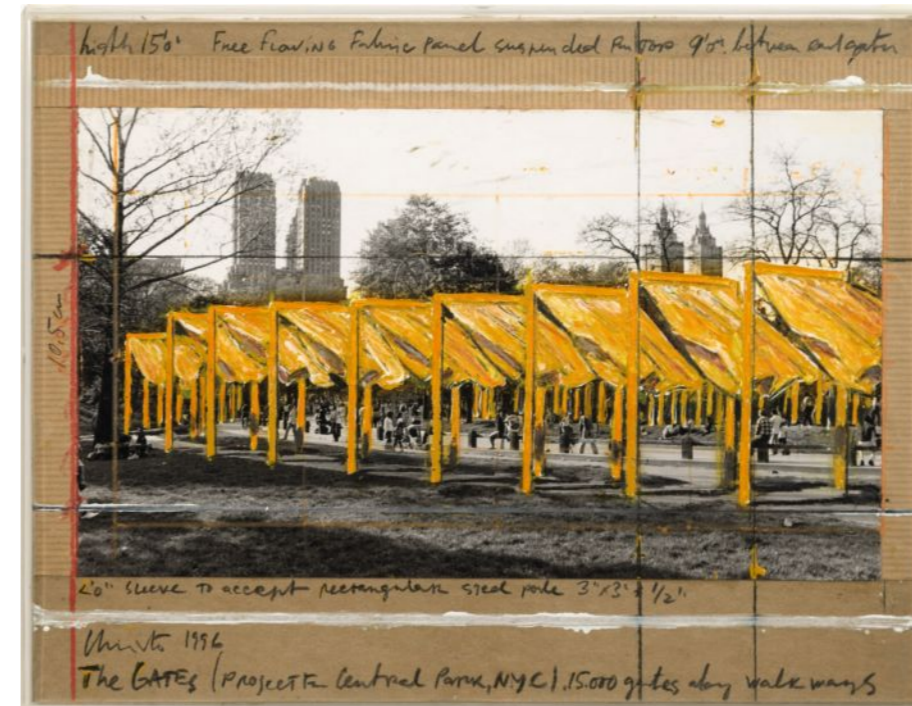 higth 15'0" Free Flowing Fabric panel suspended 9'0" between each gates
10.5 cm
2'0" sleeve to accept rectangular steel pole 3"x3"x1/2"
Christo 1996
The GATES (Project for Central Park, NYC) 15.000 gates along walkways